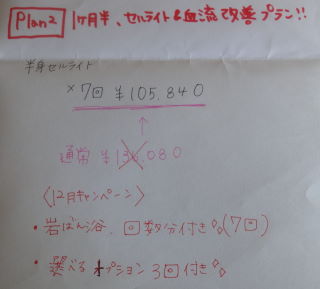 Plan2 1ヶ月半、セルライト&血流改善プラン!!
半身セルライト
×7回 ¥105,840
↑
通常 ¥136,080
〈12月キャンペーン〉
・岩ばん浴、回数分付き(7回)
・選べるオプション3回付き